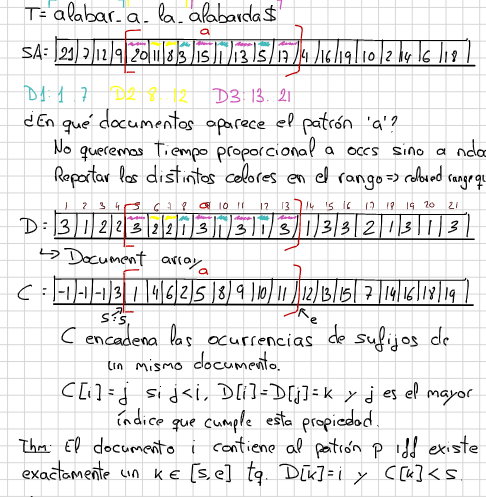 T= alabar_a_la_alabarda$
a
SA: |21|7|12|9|20|11|8|3|15|1|13|5|17|4|16|19|10|2|14|6|18|
D1: 1..7 D2: 8..12 D3: 13..21
¿En qué documentos aparece el patrón 'a'?
No queremos tiempo proporcional a occs sino a ndoc
Reportar los distintos colores en el rango => colored range qu
1 2 3 4 5 6 7 8 9 10 11 12 13 14 15 16 17 18 19 20 21
D: |3|1|2|2|3|2|2|1|3|1|3|1|3|1|3|3|2|1|3|1|3|
↳ Document array
a
C = |-1|-1|-1|3|1|4|6|2|5|8|9|10|11|12|13|15|7|14|16|18|19|
s=5 e
C encadena las ocurrencias de sufijos de
un mismo documento.
C[i]=j si j<i, D[i]=D[j]=k y j es el mayor
índice que cumple esta propiedad.
Thm: El documento i contiene al patrón p iff existe
exactamente un k ∈ [s,e] tq. D[k]=i y C[k]<s.